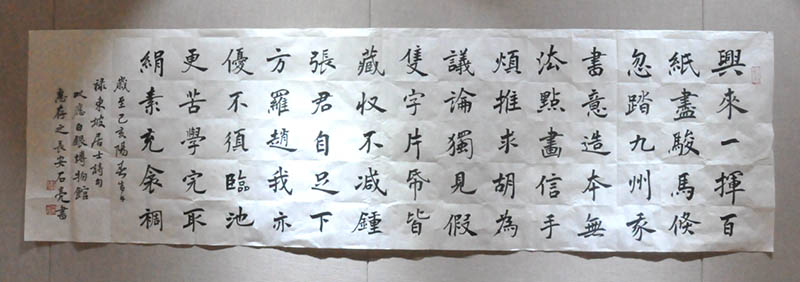 興來一揮百
紙盡駿馬倏
忽踏九州我
書意造本無
法點畫信手
煩推求胡為
議論獨見假
隻字片帋皆
藏收不減鍾
張君自足下
方羅趙我亦
優不須臨池
更苦學完取
絹素充衾裯
歲至己亥陽春
祿東坡居士詩句
以應白銀博物館
惠存之長安石亮書